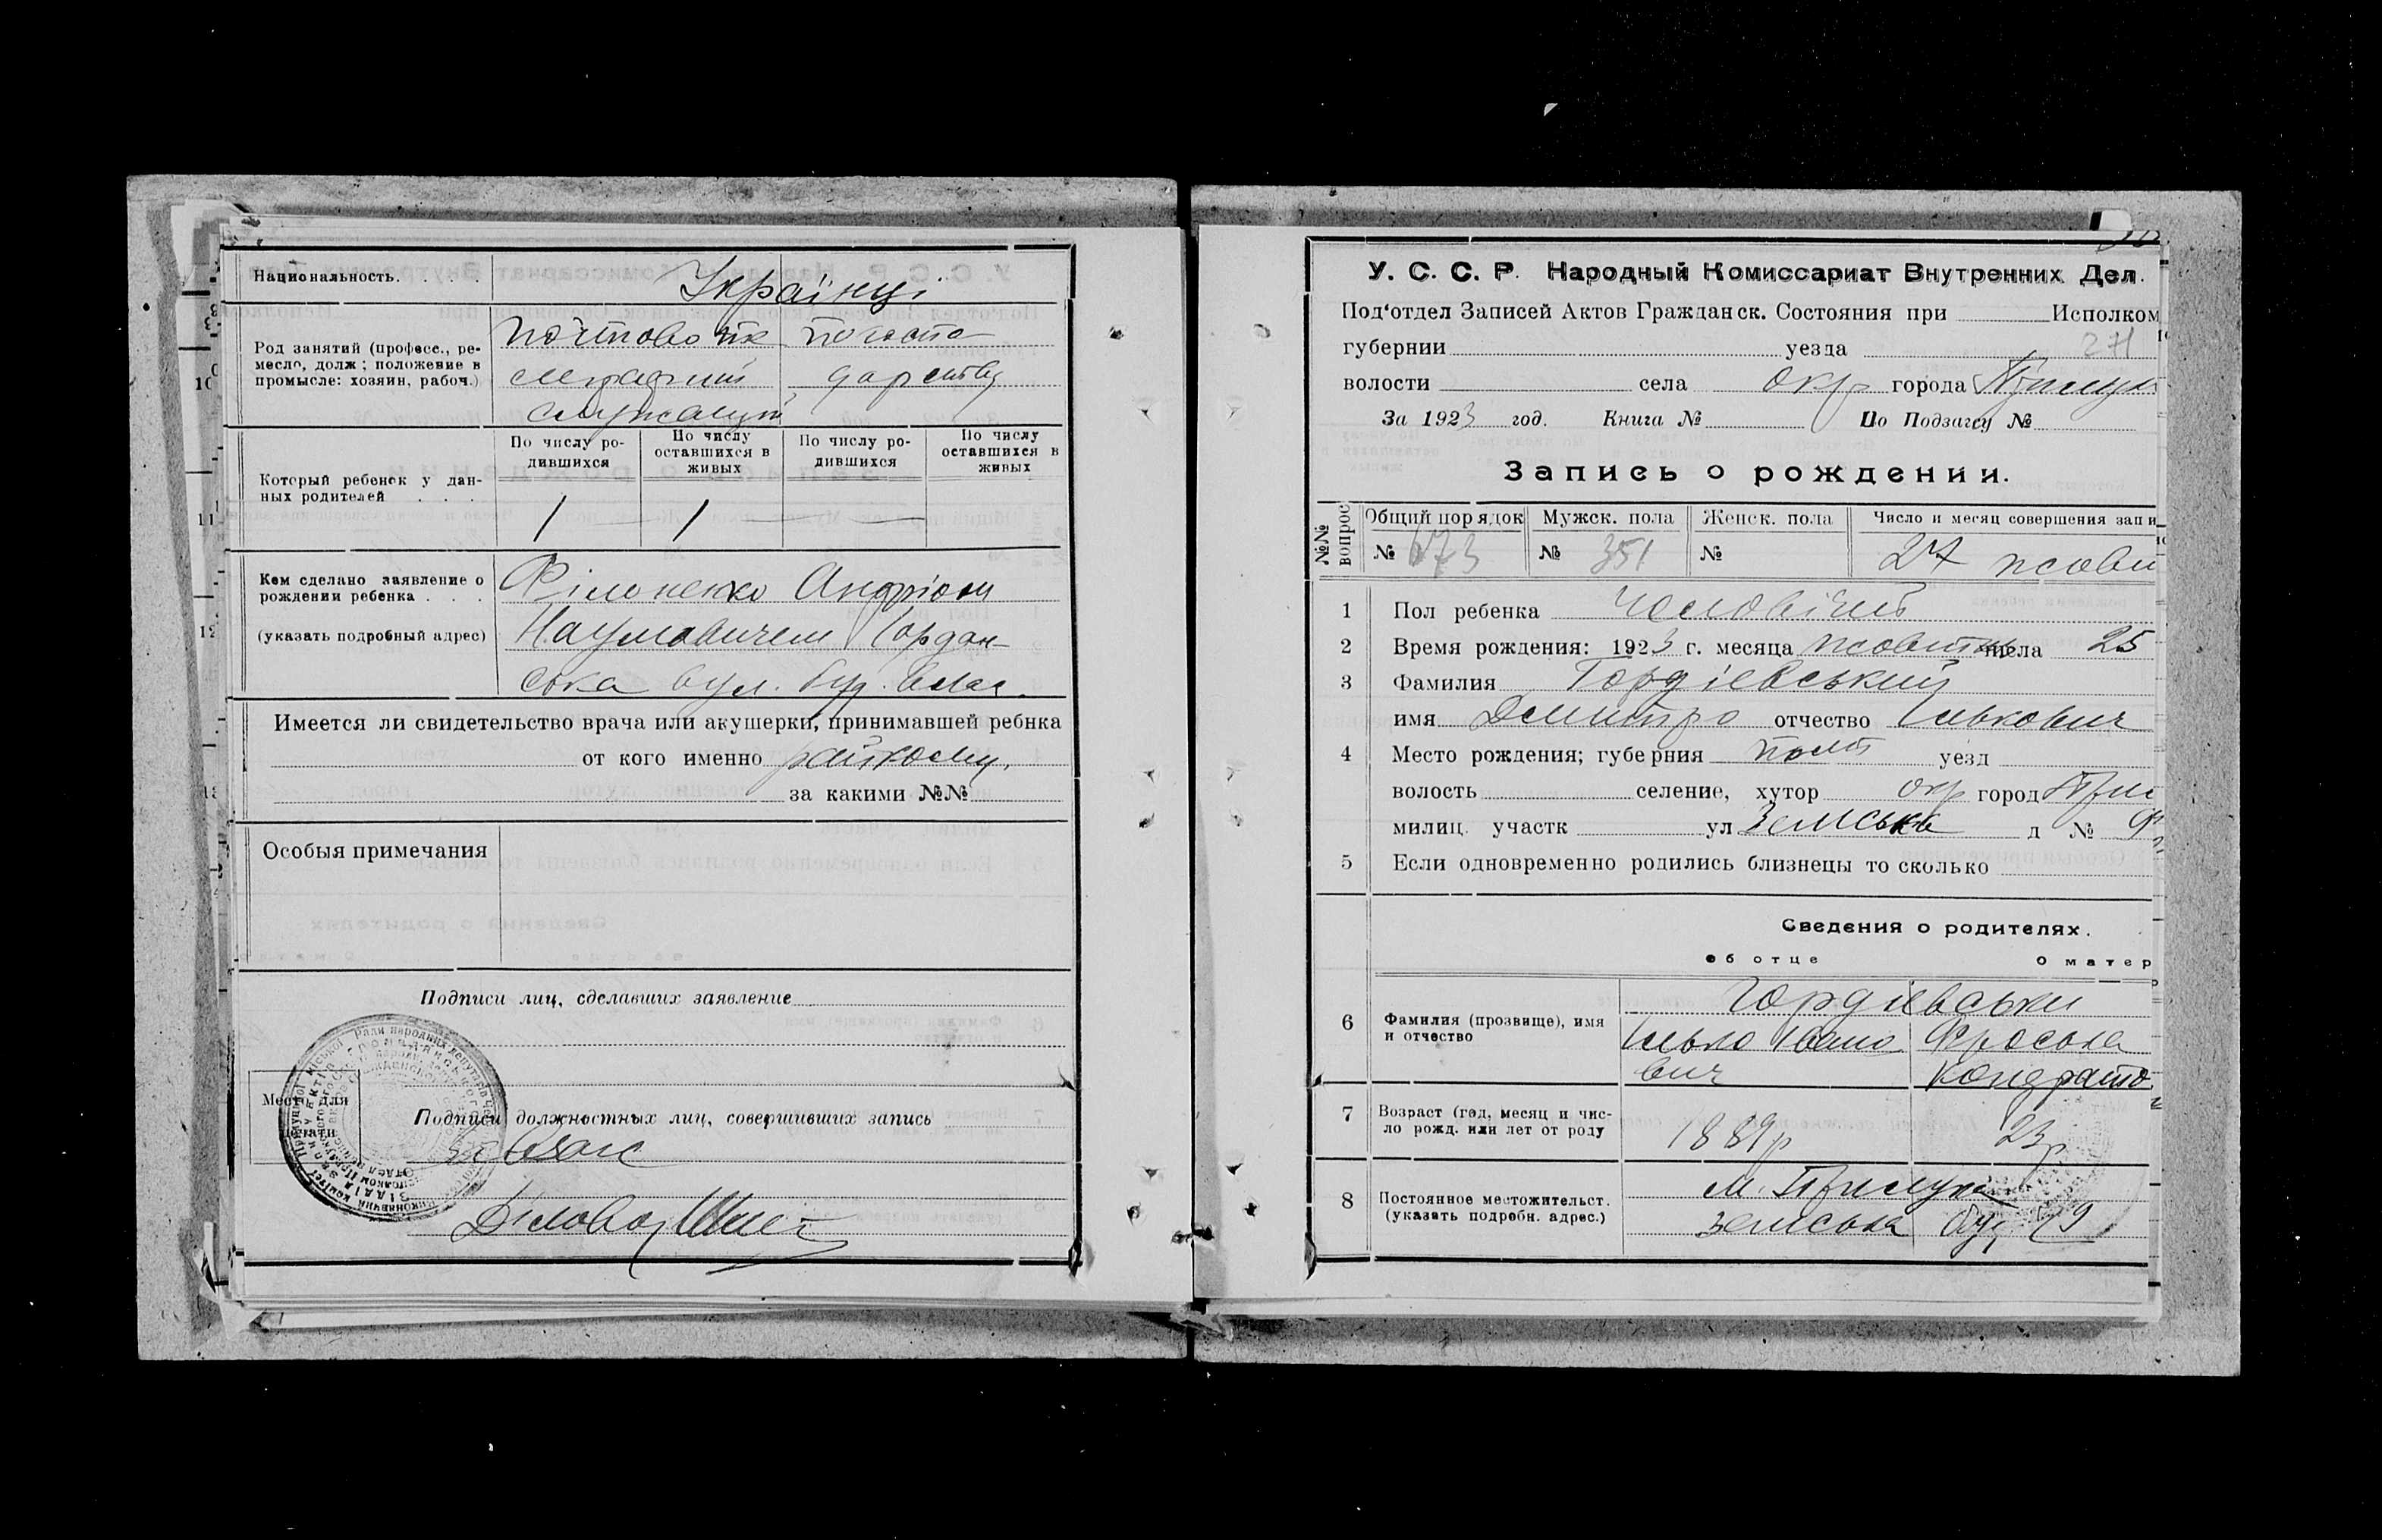 Национальность. Українці
Род занятий (професс., ре-
месло, долж; положение в
промысле: хозяин, рабоч.)
служащий
По числу ро-
дившихся
По числу
оставшихся в
живых
По числу ро-
дившихся
По числу
оставшихся в
живых
Который ребенок у дан-
ных родителей 1 1
Кем сделано заявление о
рождении ребенка
(указать подробный адрес)
Філоненко Андрієм
Наумовичем Іордан-
ська вул. буд. влас.
Имеется ли свидетельство врача или акушерки, принимавшей ребнка
от кого именно райкому,
за какими №№
Особыя примечания
Подписи лиц, сделавших заявление
Место для
печати
Подписи должностных лиц, совершивших запись
Діловод
У. С. С. Р. Народный Комиссариат Внутренних Дел.
Под'отдел Записей Актов Гражданск. Состояния при Исполком
губернии уезда 271
волости села окр города Прилук
За 1923 год. Книга № По Подзагсу №
Запись о рождении.
№№ вопрос
Общий порядок Мужск. пола Женск. пола Число и месяц совершения запи
№ 673 № 351 № 27 жовт
1 Пол ребенка Чоловічий
2 Время рождения: 1923 г. месяца жовтня числа 25
3 Фамилия Гордієвський
имя Дмитро отчество Ількович
4 Место рождения; губерния Полт уезд
волость селение, хутор окр город При
милиц. участк ул Земська д №
5 Если одновременно родились близнецы то сколько
Сведения о родителях.
об отце о матер
6 Фамилия (прозвище), имя
и отчество
Гордієвськи
Ілько Івано Фроська
вич Кондрато
7 Возраст (год, месяц и чис-
ло рожд. или лет от роду
1889р 23р
8 Постоянное местожительст.
(указать подробн. адрес.)
м. Прилука
Земська буд 79